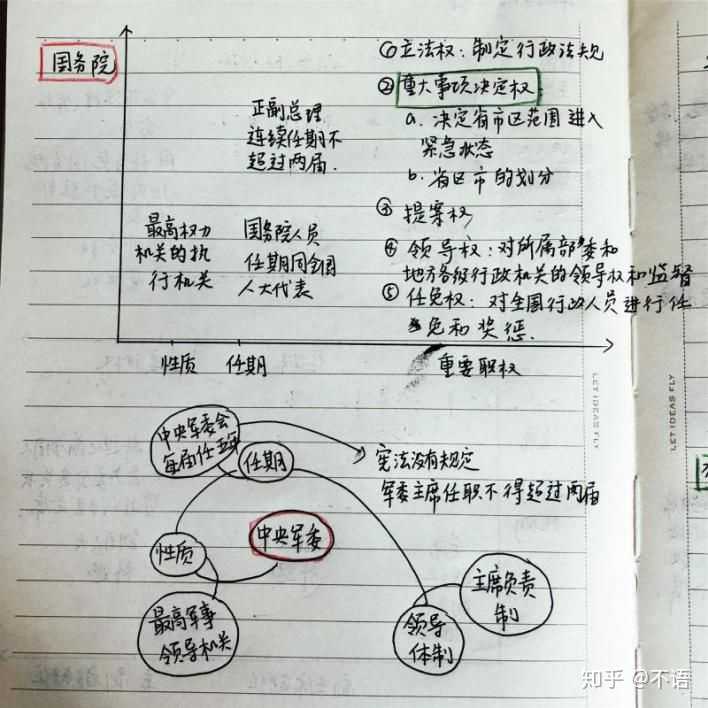 国务院
正副总理
连续任期不
超过两届.
最高权力
机关的执
行机关
国务院人员
任期同全国
人大代表
①立法权:制定行政法规
②重大事项决定权
a. 决定省市区范围进入
紧急状态
b. 省区市的划分
③ 提案权
④ 领导权:对所属部委和
地方各级行政机关的领导权和监督
⑤ 任免权:对全国行政人员进行任
免和奖惩.
性质
任期
重要职权
中央军委会
每届任五年
任期
宪法没有规定
军委主席任职不得超过两届
性质
中央军委
最高军事
领导机关
领导
体制
主席负责
制
LET IDEAS FLY
LET IDEAS FLY
知乎 @不语